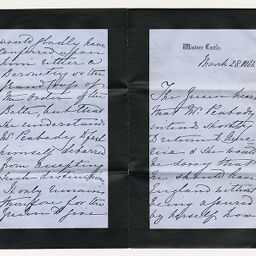 would gladly have
conferred upon
him either a
Baronetcy or the
Grand Cross of
the Order of the
Bath, but that
she understands
Mr Peabody to feel
himself debarred
from accepting
such distinctions.
It only remains
therefore for the
Queen to give
Windsor Castle
March 28 1866.
The Queen hears
that Mr Peabody
intends shortly
to return to America
& she would
be sorry that
he should leave
England without
being assured
by herself how